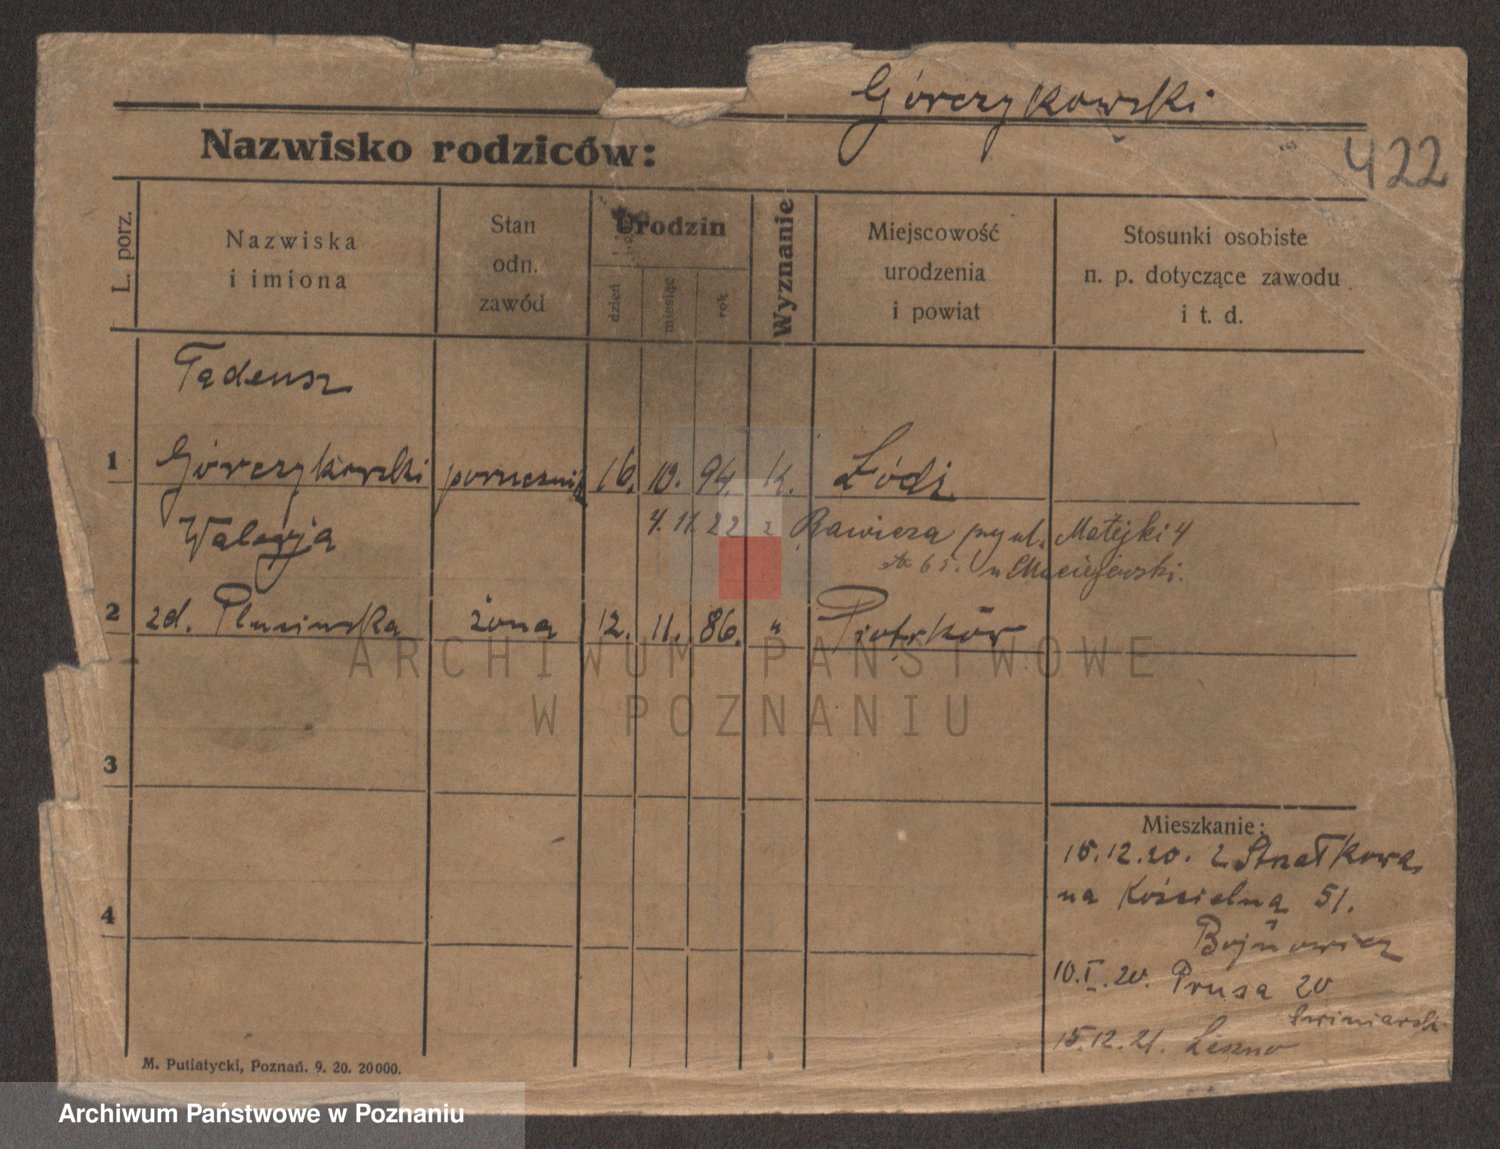 Górczykowski
422
Nazwisko rodziców:
L. porz.
Nazwiska
i imiona
Stan
odn.
zawód
Urodzin
dzień
miesiąc
rok
Wyznanie
Miejscowość
urodzenia
i powiat
Stosunki osobiste
n. p. dotyczące zawodu
i t. d.
Tadeusz
1 Górczykowski porucznik 16. 10. 94. k. Łódź
4. 11. 22 z Rawicza przy ul. Matejki 4
u Maciejewski.
Walerja
2 zd. Plucinska żona 12. 11. 86. " Piotrków
3
4
Mieszkanie:
15.12.20. z Strzałkowa
na Kościelną 51.
10.I.20. Prusa 20
Swiniarski
15.12.21. Leszno
M. Putiatycki, Poznań. 9. 20. 20000.
ARCHIWUM PAŃSTWOWE
W POZNANIU
Archiwum Państwowe w Poznaniu